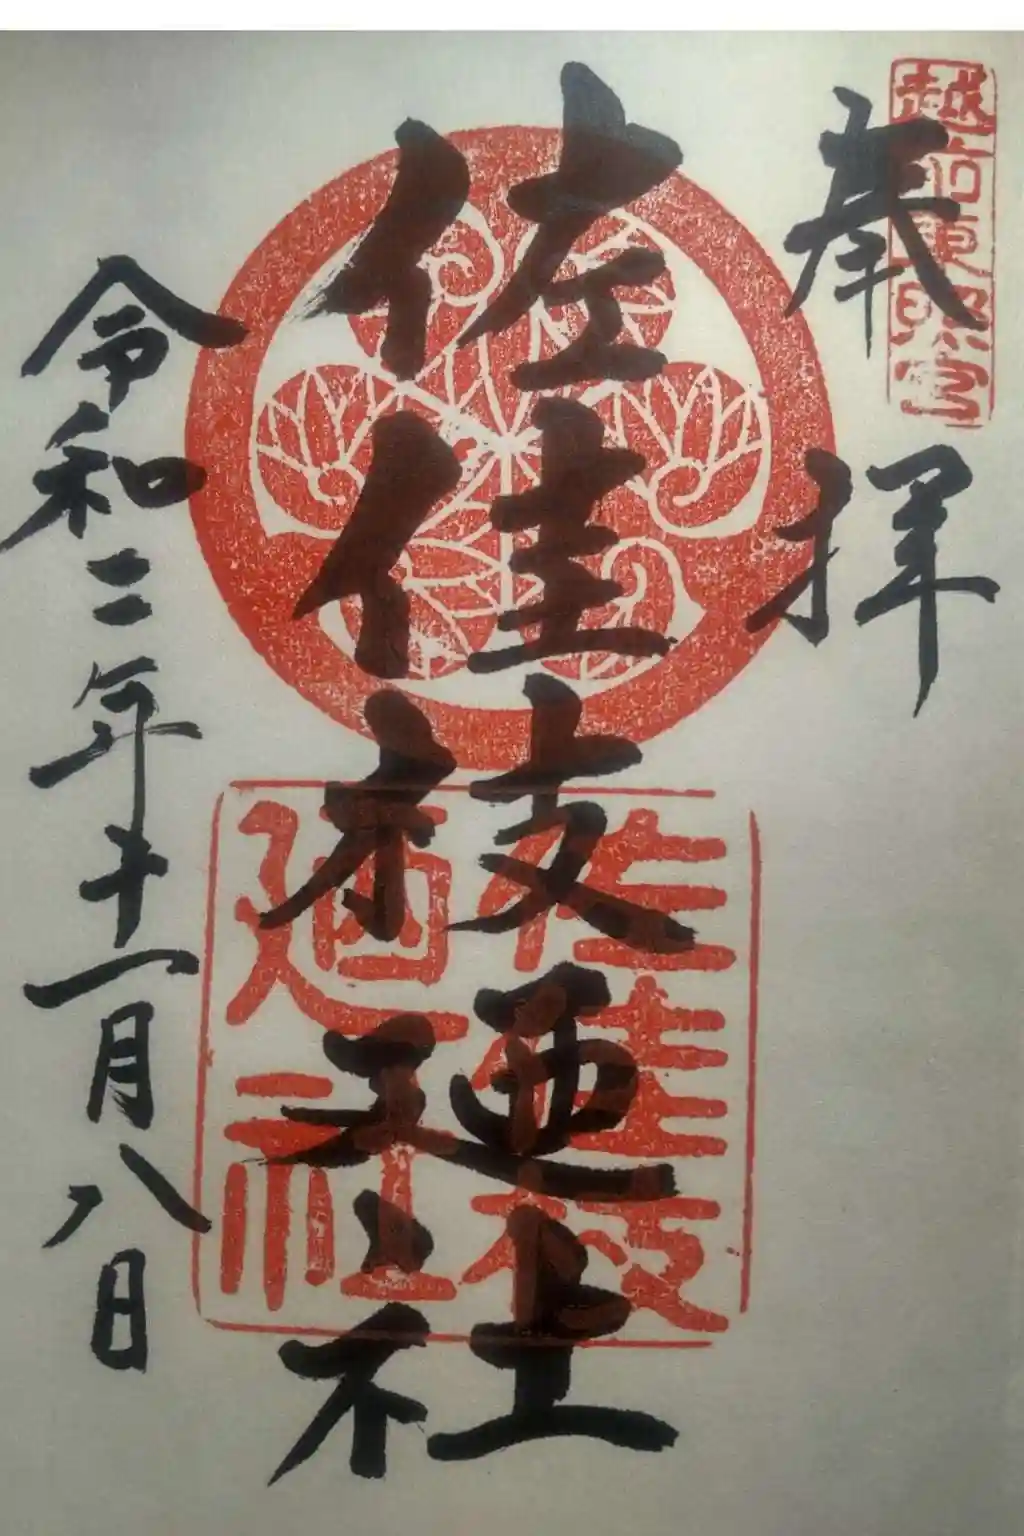 奉拝
越前東照宮
佐佳枝廼社
佐佳枝
廼社
令和二年十一月八日